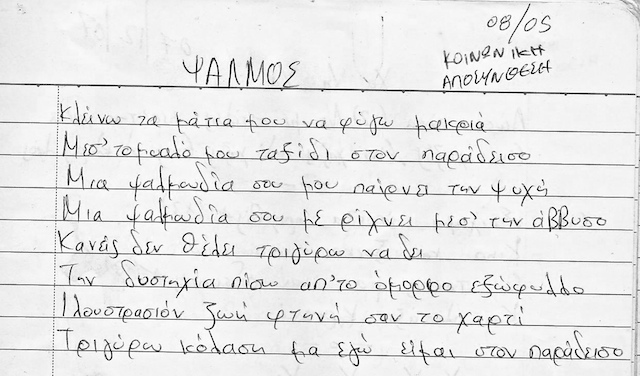 08/05
ΚΟΙΝΩΝΙΚΗ
ΑΠΟΣΥΝΘΕΣΗ
ΨΑΛΜΟΣ
Κλείνω τα μάτια μου να φύγω μακριά
Μεσ' το μυαλό μου ταξίδι στον παράδεισο
Μια ψαλμωδία σου μου παίρνει την ψυχή
Μια ψαλμωδία σου με ρίχνει μεσ' την άββυσο
Κανείς δεν θέλει τριγύρω να δει
Την δυστηχία πίσω απ' το όμορφο εξώφυλλο
Ιλουστρασιόν ζωή φτηνή σαν το χαρτί
Τριγύρω κόλαση μα εγώ είμαι στον παράδεισο